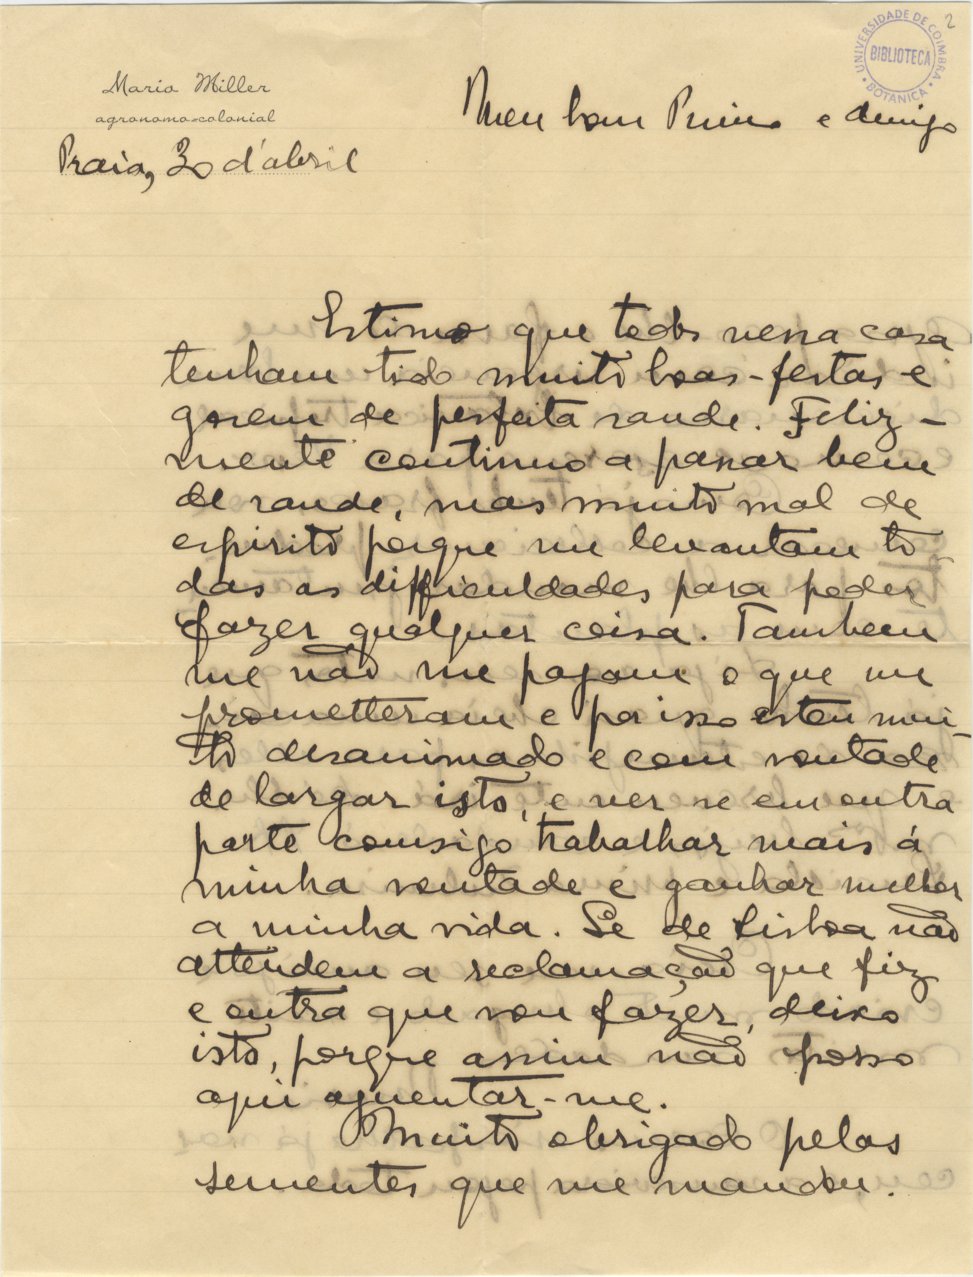 2
UNIVERSIDADE DE COIMBRA
BIBLIOTECA
BOTANICA
Mario Miller
agronomo-colonial
Meu bom Primo e amigo
Praia, 30 d'abril
Estimo que todos nessa casa
tenham tido muito boas-festas e
gosem de perfeita saude. Feliz-
mente continuo a passar bem
de saude, mas muito mal de
espirito porque me levantam to
das as difficuldades para poder
fazer qualquer coisa. Tambem
me não me pagam o que me
prometteram e por isso estou mui-
to desanimado e com vontade
de largar isto, e ver se em outra
parte comsigo trabalhar mais á
minha vontade e ganhar melhor
a minha vida. Se de Lisboa não
attendem a reclamação que fiz
e outra que vou fazer, deixo
isto, porque assim não posso
aqui aguentar-me.
Muito obrigado pelas
sementes que me mandou.